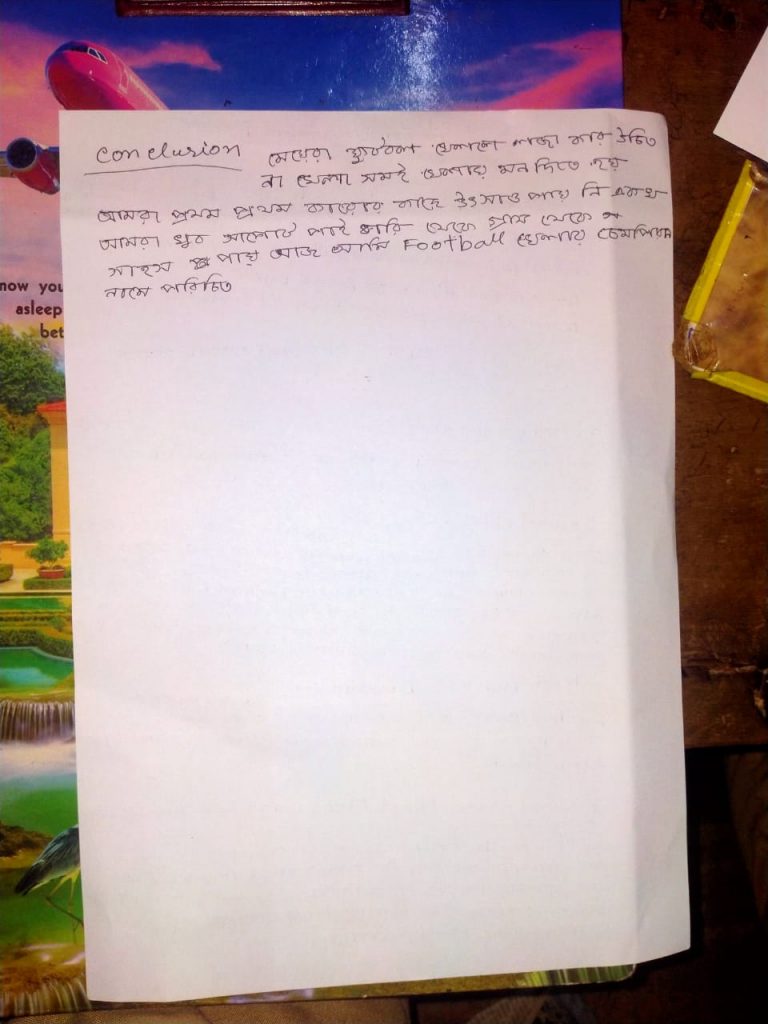 Conclusion মেয়েরা ফুটবল খেলালে লজা কার উচিত
না খেলা সমই খেলায় মন দিতে হয়
আমরা প্রথম প্রথম কারোর কাছে উৎসাও পায় নি এখন
আমরা খুব সাপোর্ট পাই বারি থেকে গ্রাম থেকে
সাহস পায় আজ আমি Football খেলায় চেমপিয়ন
নামে পরিচিত
now you
asleep
bet